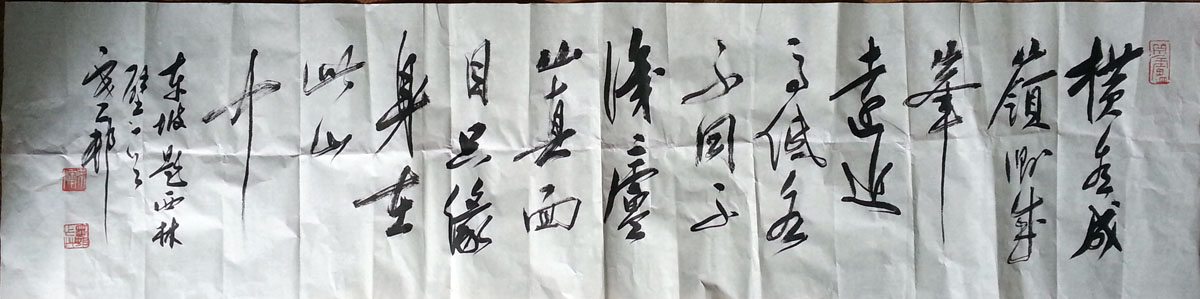 横看成
嶺側成
峯
遠近
高低各
不同不
識廬
山真面
目只緣
身在
此山
中
東坡题西林
壁